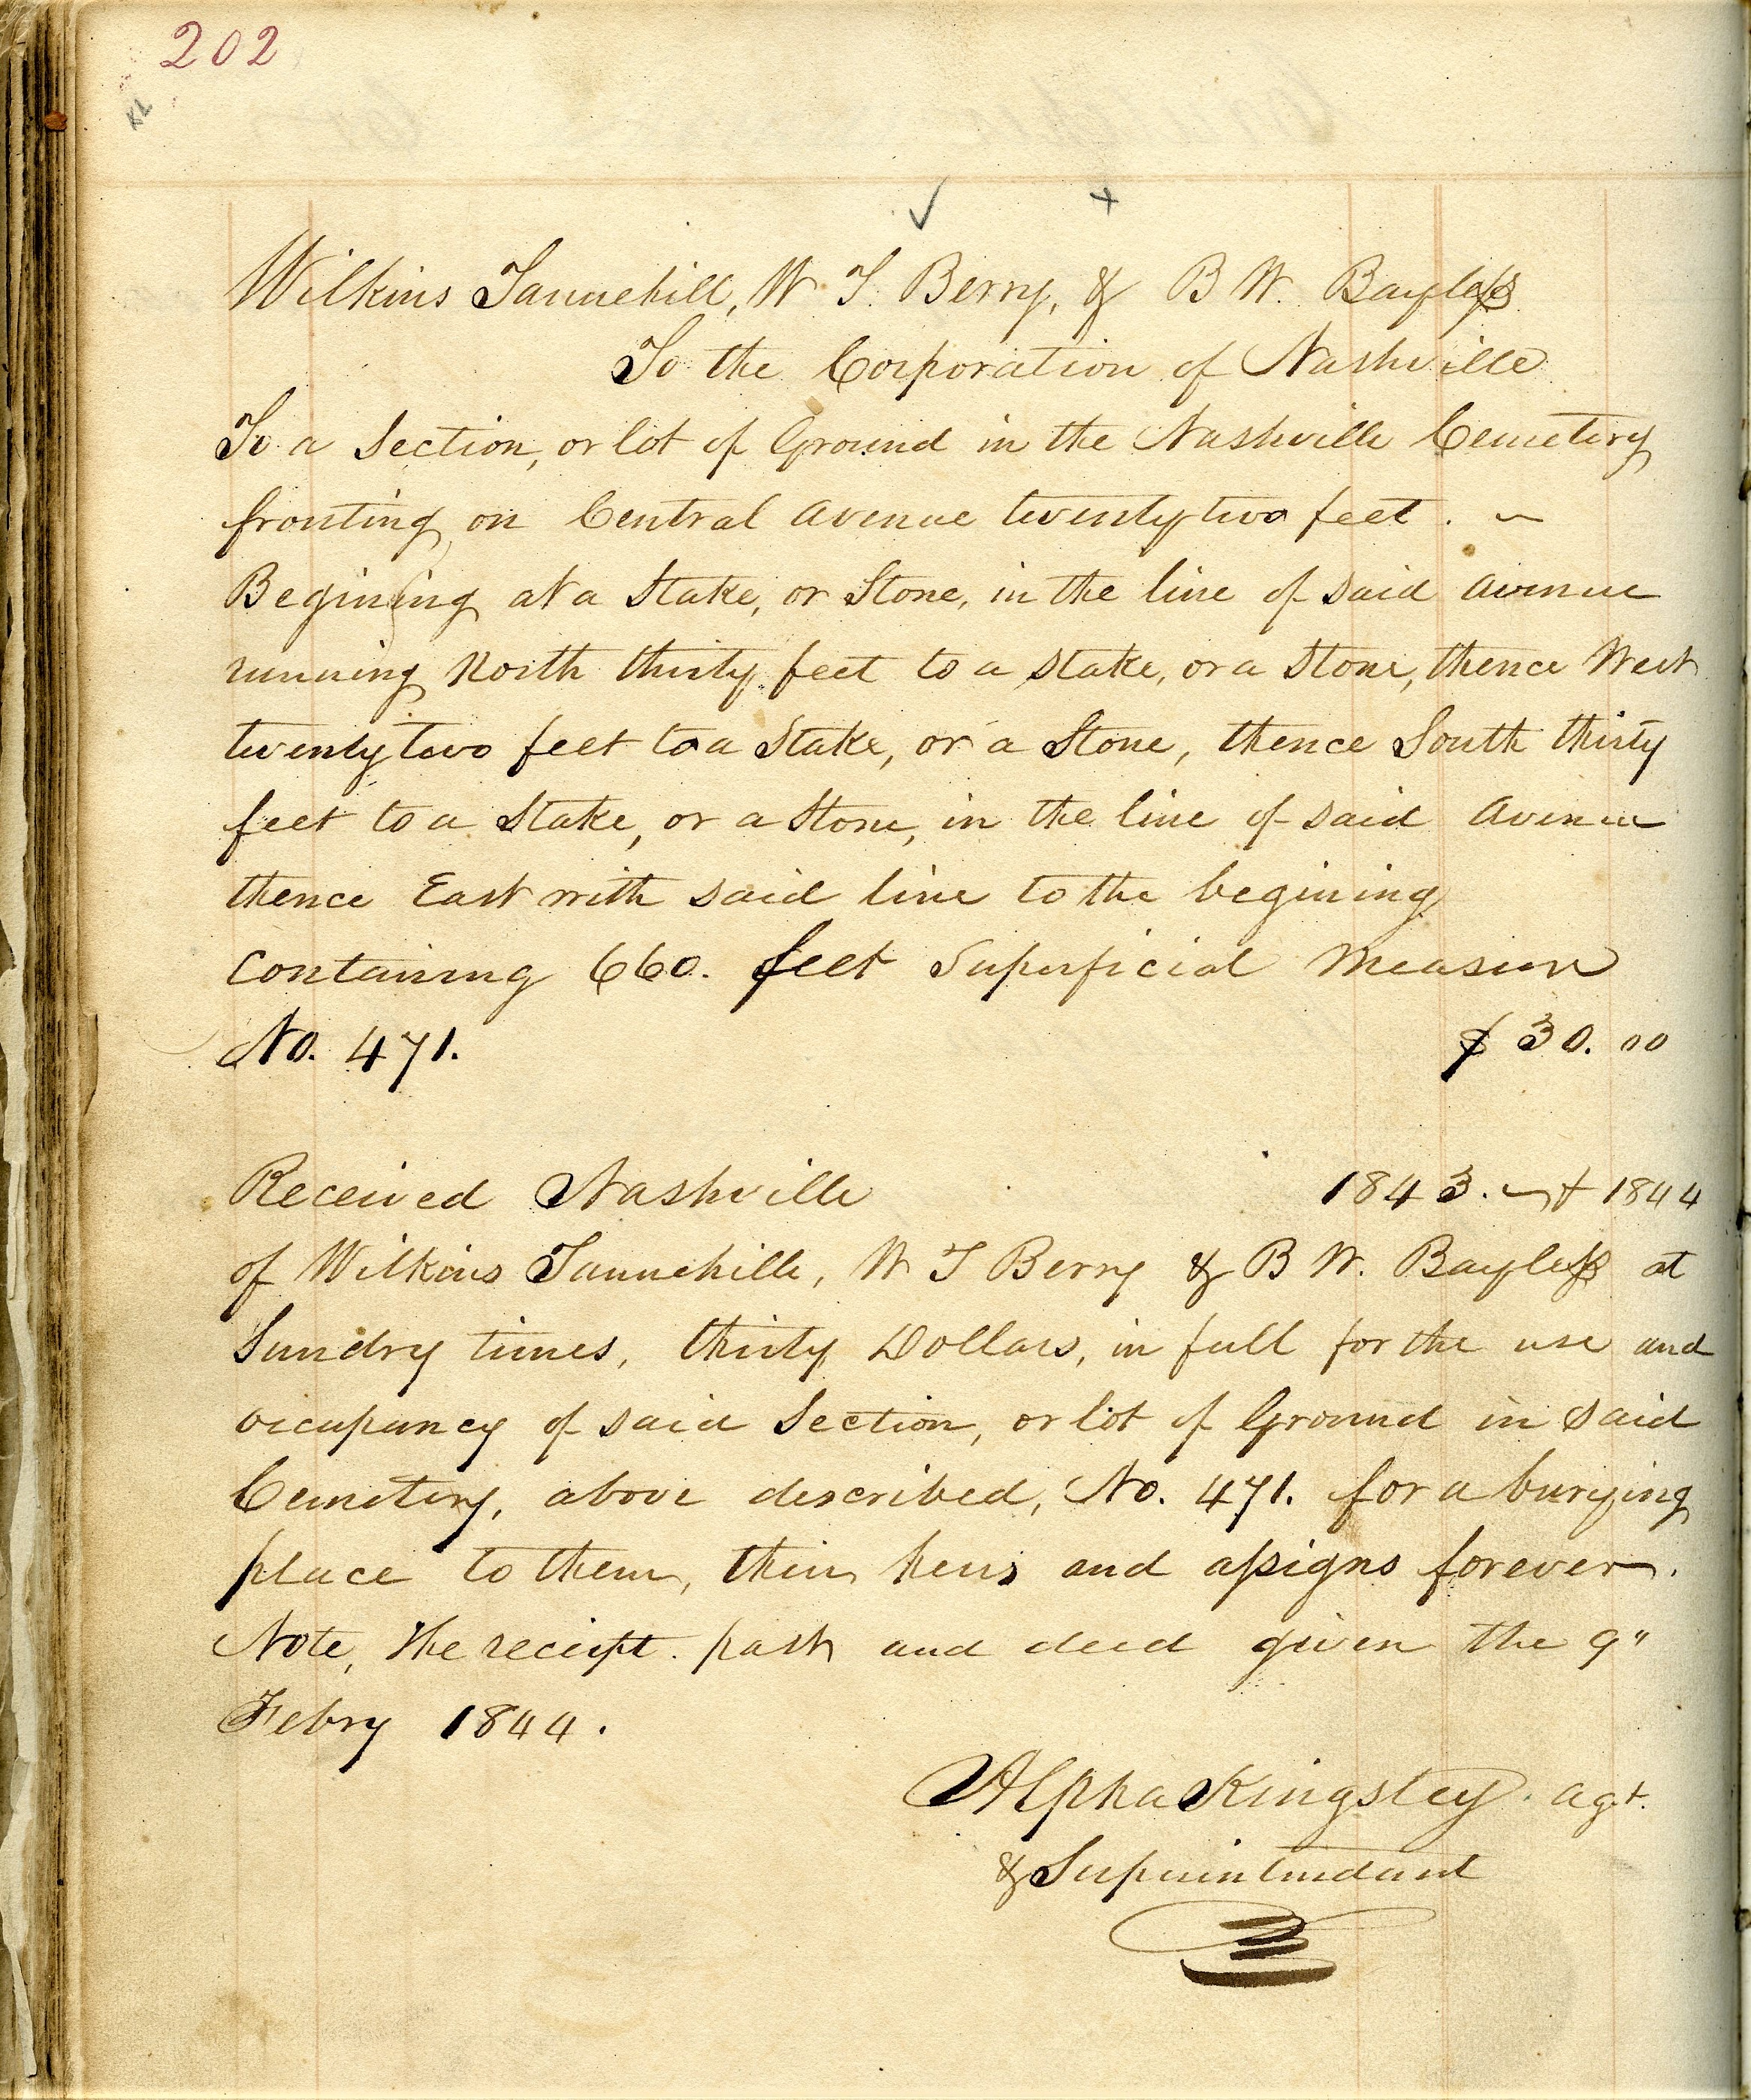 202
Wilkins Tannehill, W. T. Berry, & B W. Bayless
To the Corporation of Nashville
To a Section, or lot of Ground in the Nashville Cemetery
fronting on Central Avenue twenty two feet. ~
Begining at a Stake, or Stone, in the line of said Avenue
running North thirty feet to a stake, or a Stone, thence West
twenty two feet to a Stake, or a Stone, thence South thirty
feet to a Stake, or a Stone, in the line of said Avenue
thence East with said line to the begining
Containing 660. feet Superficial Measure
No. 471. $30.00
Received Nashville 1843. & 1844
of Wilkins Tannehill, W T Berry & B W. Bayless at
Sundry times, thirty Dollars, in full for the use and
occupancy of said Section, or lot of Ground in said
Cemetery, above described, No. 471. for a burying
place to them, their heirs and assigns forever.
Note, the reciept past and deed given the 9"
Febry 1844.
Alpha Kingsley. agt.
& Superintendant